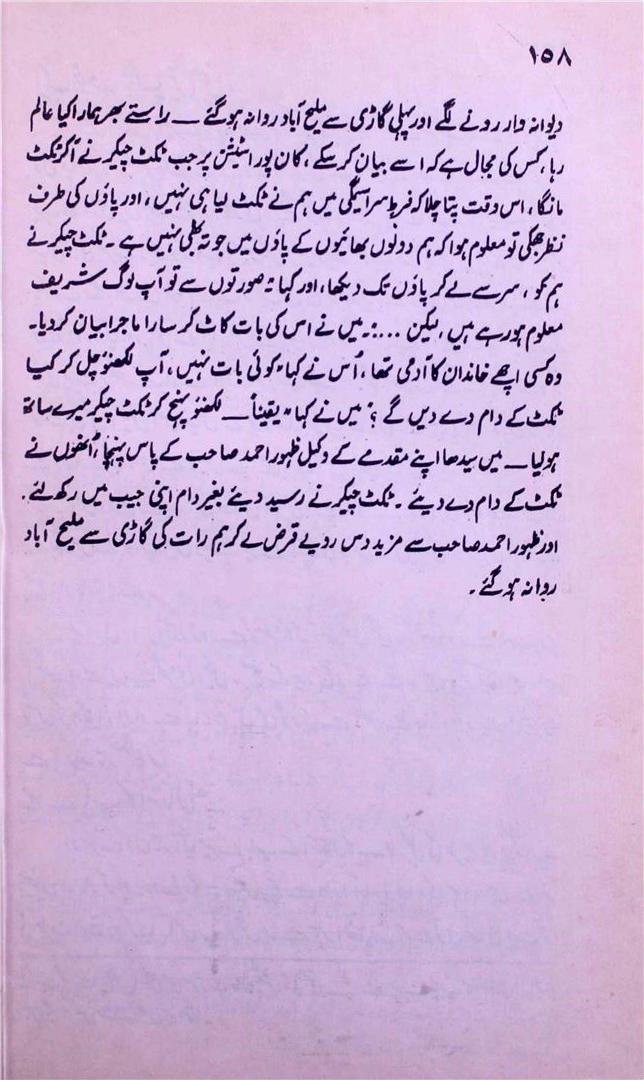 ۱۵۸
دیوانہ وار رونے لگے اور پہلی گاڑی سے ملیح آباد روانہ ہو گئے — راستے بھر ہمارا کیا عالم
رہا، کس کی مجال ہے کہ اسے بیان کر سکے، کان پور اسٹیشن پر جب ٹکٹ چیکر نے آکر ٹکٹ
مانگا، اس وقت پتا چلا کہ فرطِ سراسیمگی میں ہم نے ٹکٹ لیا ہی نہیں، اور پاؤں کی طرف
نظر جھکی تو معلوم ہوا کہ ہم دونوں بھائیوں کے پاؤں میں جوتہ بھی نہیں ہے۔ ٹکٹ چیکر نے
ہم کو، سر سے لے کر پاؤں تک دیکھا، اور کہا "صورتوں سے تو آپ لوگ شریف
معلوم ہو رہے ہیں، لیکن ....:۔ میں نے اس کی بات کاٹ کر سارا ماجرا بیان کر دیا۔
وہ کسی اچھے خاندان کا آدمی تھا، اُس نے کہا "کوئی بات نہیں، آپ لکھنؤ چل کر کیا
ٹکٹ کے دام دے دیں گے؟" میں نے کہا "یقیناً — لکھنؤ پہنچ کر ٹکٹ چیکر میرے ساتھ
ہو لیا — میں سیدھا اپنے مقدمے کے وکیل ظہور احمد صاحب کے پاس پہنچا، اُنھوں نے
ٹکٹ کے دام دے دیئے۔ ٹکٹ چیکر نے رسید دیئے بغیر دام اپنی جیب میں رکھ لئے۔
اور ظہور احمد صاحب سے مزید دس روپے قرض لے کر ہم رات کی گاڑی سے ملیح آباد
روانہ ہو گئے۔